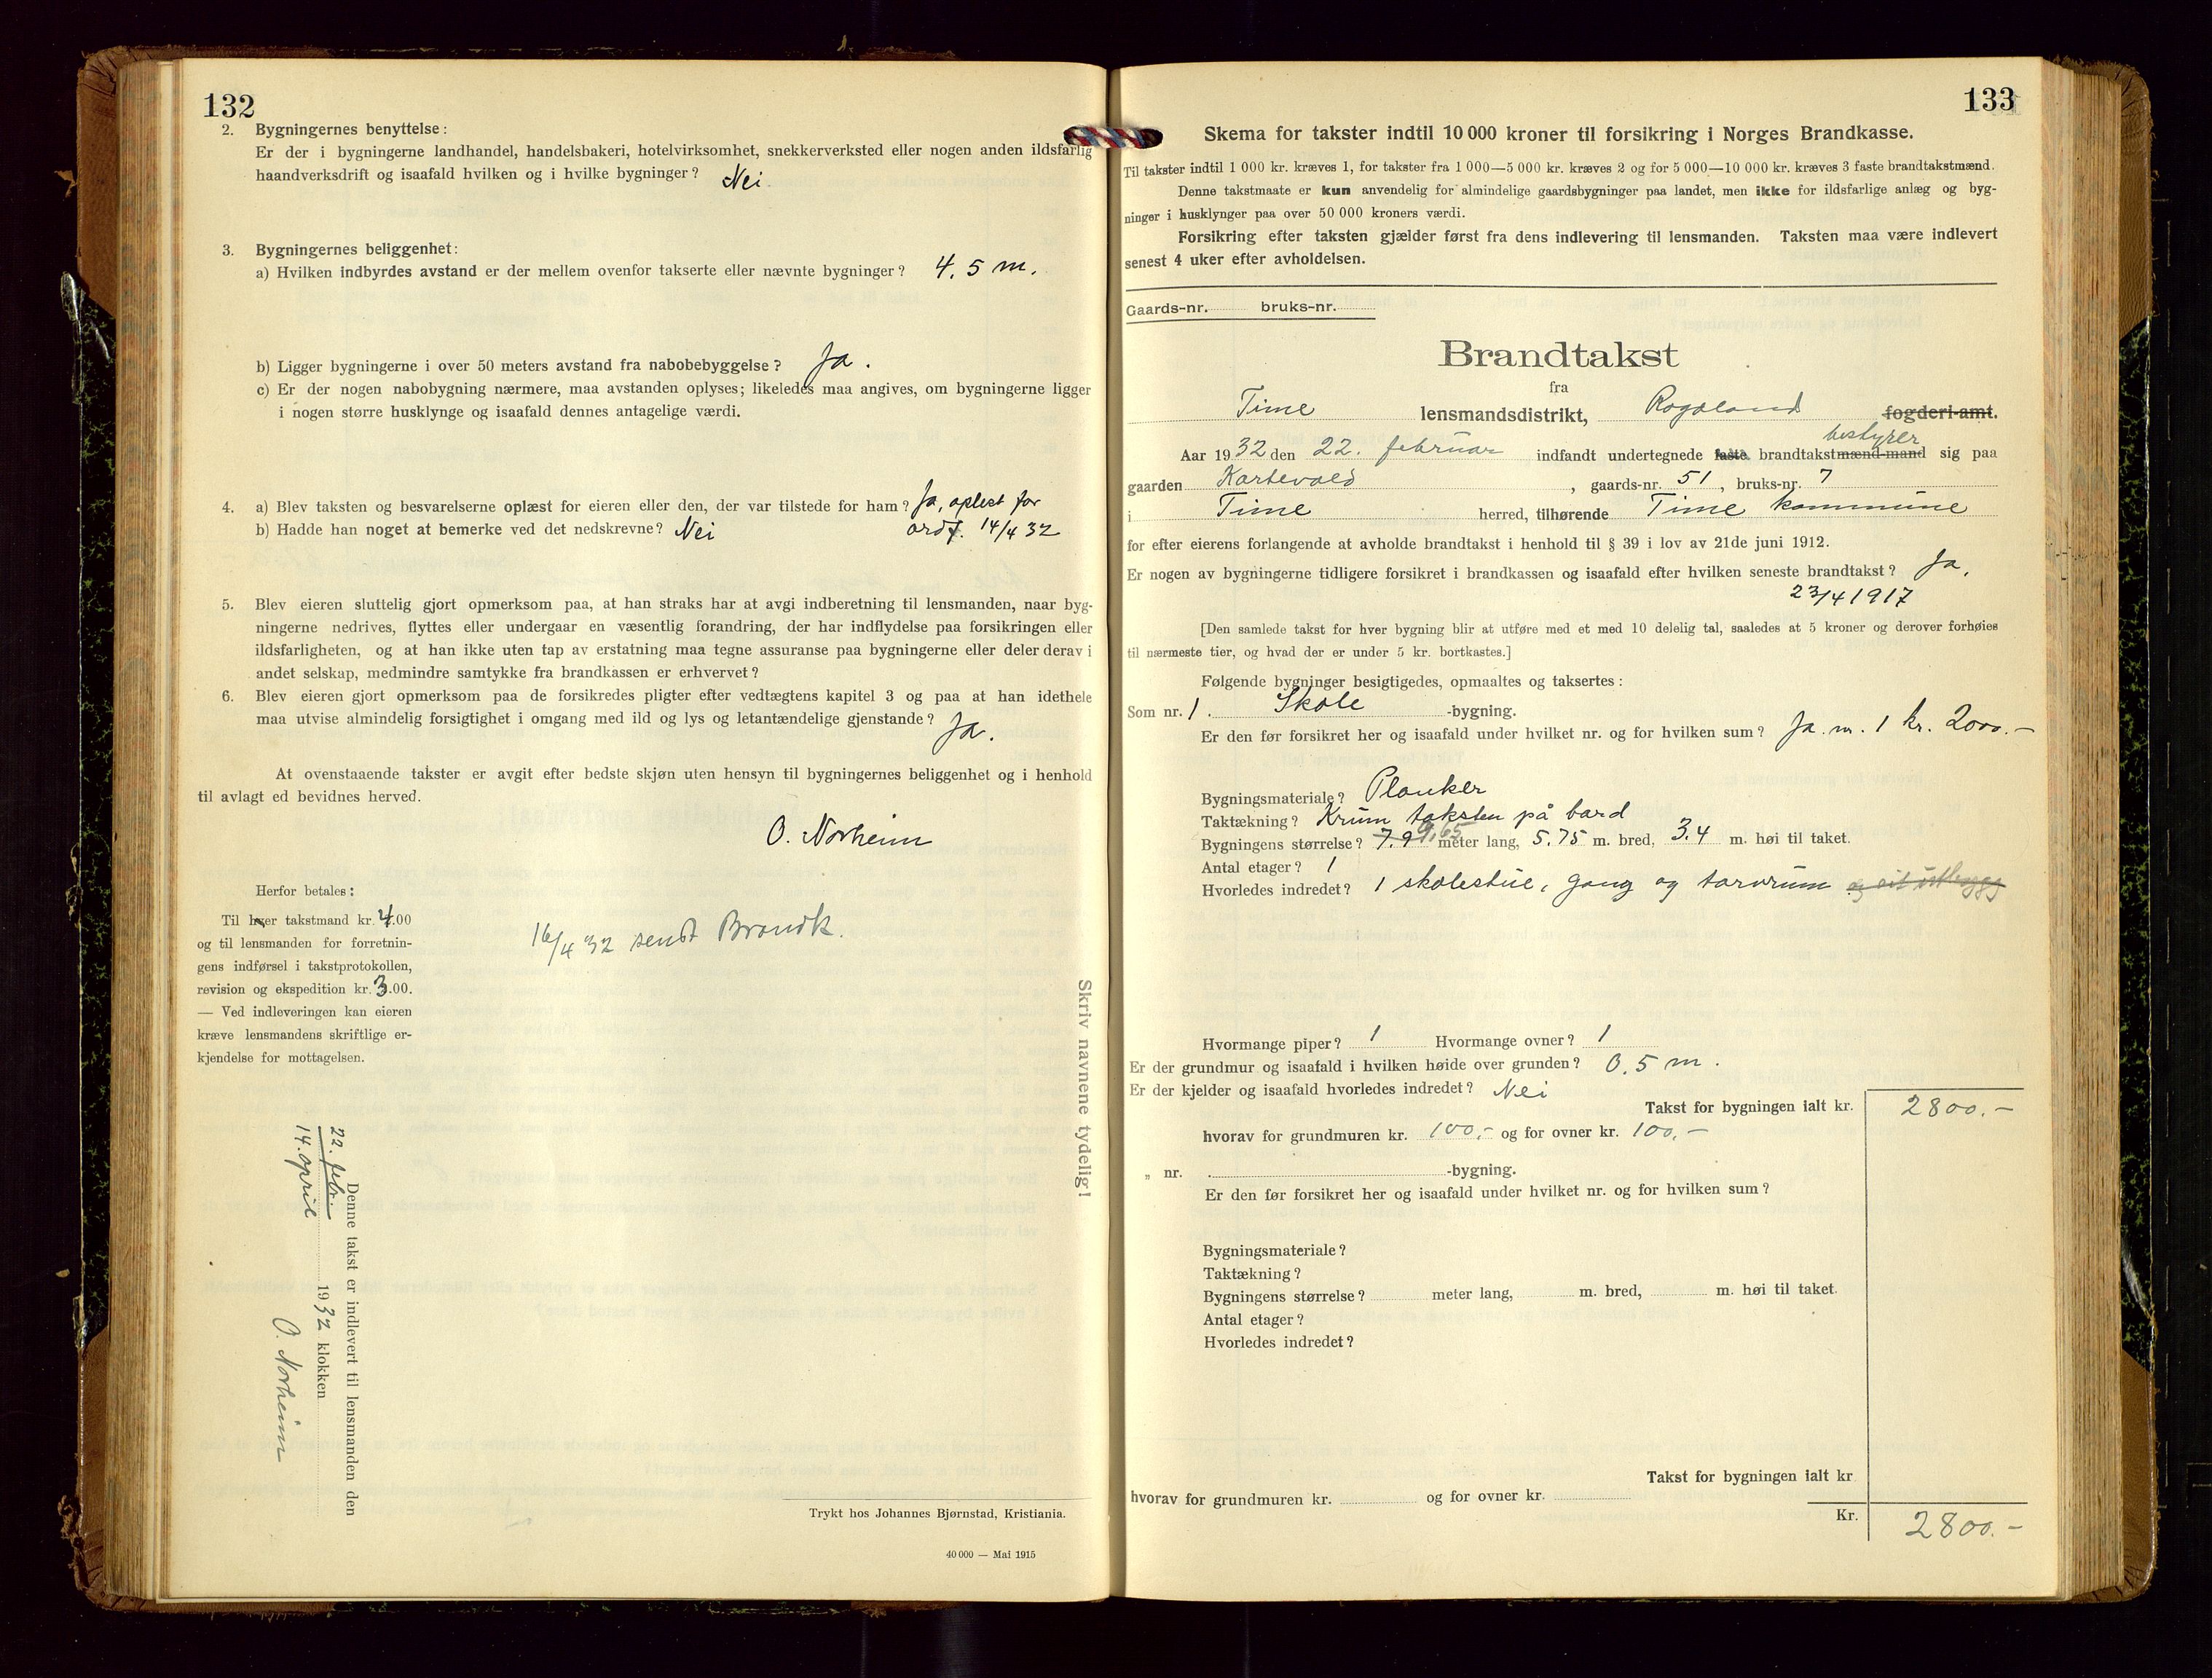 132
2. Bygningernes benyttelse:
Er der i bygningerne landhandel, handelsbakeri, hotelvirksomhet, snekkerverksted eller nogen anden ildsfarlig
haandverksdrift og isaafald hvilken og i hvilke bygninger? Nei
3. Bygningernes beliggenhet:
a) Hvilken indbyrdes avstand er der mellem ovenfor takserte eller nævnte bygninger? 4.5 m.
b) Ligger bygningerne i over 50 meters avstand fra nabobebyggelse? Ja.
c) Er der nogen nabobygning nærmere, maa avstanden oplyses; likeledes maa angives, om bygningerne ligger
i nogen større husklynge og isaafald dennes antagelige værdi.
4. a) Blev taksten og besvarelserne oplæst for eieren eller den, der var tilstede for ham? Ja, oplest for
b) Hadde han noget at bemerke ved det nedskrevne? Nei ordf. 14/4 32
5. Blev eieren sluttelig gjort opmerksom paa, at han straks har at avgi indberetning til lensmanden, naar byg-
ningerne nedrives, flyttes eller undergaar en væsentlig forandring, der har indflydelse paa forsikringen eller
ildsfarligheten, og at han ikke uten tap av erstatning maa tegne assuranse paa bygningerne eller deler derav i
andet selskap, medmindre samtykke fra brandkassen er erhvervet?
6. Blev eieren gjort opmerksom paa de forsikredes pligter efter vedtægtens kapitel 3 og paa at han idethele
maa utvise almindelig forsigtighet i omgang med ild og lys og letantændelige gjenstande? Ja.
At ovenstaaende takster er avgit efter bedste skjøn uten hensyn til bygningernes beliggenhet og i henhold
til avlagt ed bevidnes herved.
O. Norheim
Herfor betales:
Til hver takstmand kr. 4.00
og til lensmanden for forretnin-
gens indførsel i takstprotokollen,
revision og ekspedition kr. 3.00.
— Ved indleveringen kan eieren
kræve lensmandens skriftlige er-
kjendelse for mottagelsen.
16/4 32 sendt Brandk.
Skriv navnene tydelig!
Denne takst er indlevert til lensmanden den
22. febr.
14. april 1932 klokken
O. Norheim
Trykt hos Johannes Bjørnstad, Kristiania.
40 000 — Mai 1915
133
Skema for takster indtil 10 000 kroner til forsikring i Norges Brandkasse.
Til takster indtil 1 000 kr. kræves 1, for takster fra 1 000—5 000 kr. kræves 2 og for 5 000—10 000 kr. kræves 3 faste brandtakstmænd.
Denne takstmaate er kun anvendelig for almindelige gaardsbygninger paa landet, men ikke for ildsfarlige anlæg og byg-
ninger i husklynger paa over 50 000 kroners værdi.
Forsikring efter taksten gjælder først fra dens indlevering til lensmanden. Taksten maa være indlevert
senest 4 uker efter avholdelsen.
Gaards-nr. bruks-nr.
Brandtakst
fra
Time lensmandsdistrikt, Rogaland fogderi-amt.
bestyrer
Aar 1932 den 22. februar indfandt undertegnede faste brandtakstmænd-mand sig paa
gaarden Kartevold, gaards-nr. 51, bruks-nr. 7
i Time herred, tilhørende Time kommune
for efter eierens forlangende at avholde brandtakst i henhold til § 39 i lov av 21de juni 1912.
Er nogen av bygningerne tidligere forsikret i brandkassen og isaafald efter hvilken seneste brandtakst? Ja,
23/4 1917
[Den samlede takst for hver bygning blir at utføre med et med 10 delelig tal, saaledes at 5 kroner og derover forhøies
til nærmeste tier, og hvad der er under 5 kr. bortkastes.]
Følgende bygninger besigtigedes, opmaaltes og taksertes:
Som nr. 1. Skole -bygning.
Er den før forsikret her og isaafald under hvilket nr. og for hvilken sum? Ja. nr. 1 kr. 2000.-
Bygningsmateriale? Planker
Taktækning? Krum taksten på bord
Bygningens størrelse? 7.9 9.65 meter lang, 5.75 m. bred, 3.4 m. høi til taket.
Antal etager? 1
Hvorledes indredet? 1 skolestue, gang og torvrum og eit utbygg
Hvormange piper? 1 Hvormange ovner? 1
Er der grundmur og isaafald i hvilken høide over grunden? 0.5 m.
Er der kjelder og isaafald hvorledes indredet? Nei
Takst for bygningen ialt kr. 2800.-
hvorav for grundmuren kr. 100,- og for ovner kr. 100,-
„ nr. . -bygning.
Er den før forsikret her og isaafald under hvilket nr. og for hvilken sum?
Bygningsmateriale?
Taktækning?
Bygningens størrelse? meter lang, m. bred, m. høi til taket.
Antal etager?
Hvorledes indredet?
Takst for bygningen ialt kr
hvorav for grundmuren kr. og for ovner kr.
Kr. 2800.-